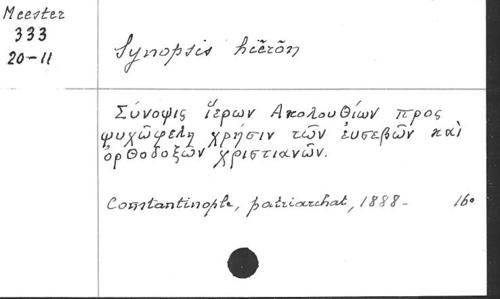 Meester
333
20-11
Synopsis hiĕrōn
Σύνοψις ἵερων Ακολουθίων προς
ψυχῶφελη χρήσιν τῶν ἐυσεβῶν καὶ
ὀρθοδοξῶν χριστιανῶν.
Constantinople, patriarchat, 1888- 16°